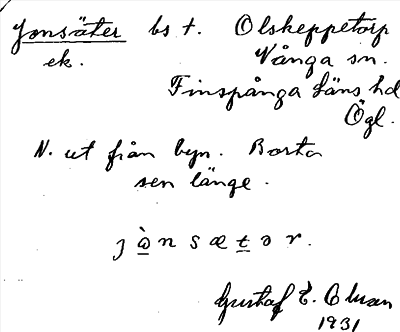 Jonsäter bs t. Olskeppetorp
ek. Vånga sn.
Finspånga läns hd
Ögl.
N. ut från byn. Borta
sen länge.
j ò n s æ t ə r.
Gustaf E. Olsson
1931